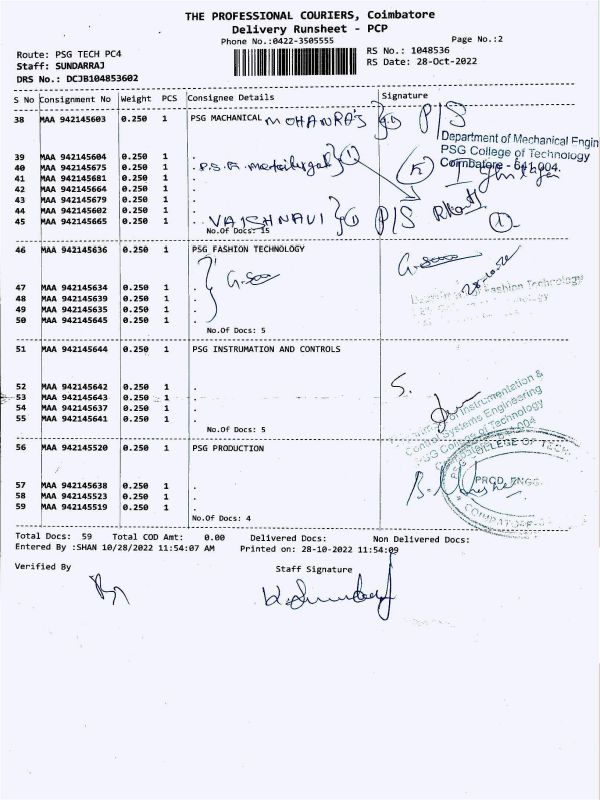 THE PROFESSIONAL COURIERS, Coimbatore
Delivery Runsheet - PCP
Phone No.:0422-3505555
Page No.:2
Route: PSG TECH PC4
RS No.: 1048536
Staff: SUNDARRAJ
RS Date: 28-Oct-2022
DRS No.: DCJB104853602
S No Consignment No Weight PCS Consignee Details Signature
38 MAA 942145603 0.250 1 PSG MACHANICAL MOHANRAJ P/S
Department of Mechanical Engin
PSG College of Technology
Coimbatore - 641 004.
39 MAA 942145604 0.250 1 .
40 MAA 942145675 0.250 1 .
41 MAA 942145681 0.250 1 .
42 MAA 942145664 0.250 1 .
43 MAA 942145679 0.250 1 .
44 MAA 942145602 0.250 1 .
45 MAA 942145665 0.250 1 . VAISHNAVI P/S
No.Of Docs: 15
46 MAA 942145636 0.250 1 PSG FASHION TECHNOLOGY
47 MAA 942145634 0.250 1 .
48 MAA 942145639 0.250 1 .
49 MAA 942145635 0.250 1 .
50 MAA 942145645 0.250 1 .
Fashion Technology
No.Of Docs: 5
51 MAA 942145644 0.250 1 PSG INSTRUMATION AND CONTROLS
52 MAA 942145642 0.250 1 .
53 MAA 942145643 0.250 1 .
54 MAA 942145637 0.250 1 .
55 MAA 942145641 0.250 1 .
Instrumentation &
Control Systems Engineering
PSG College of Technology
No.Of Docs: 5
56 MAA 942145520 0.250 1 PSG PRODUCTION
57 MAA 942145638 0.250 1 .
58 MAA 942145523 0.250 1 .
59 MAA 942145519 0.250 1 .
PSG COLLEGE OF TECH
PROD. ENGG.
COIMBATORE
No.Of Docs: 4
Total Docs: 59 Total COD Amt: 0.00 Delivered Docs: Non Delivered Docs:
Entered By :SHAN 10/28/2022 11:54:07 AM Printed on: 28-10-2022 11:54:09
Verified By Staff Signature